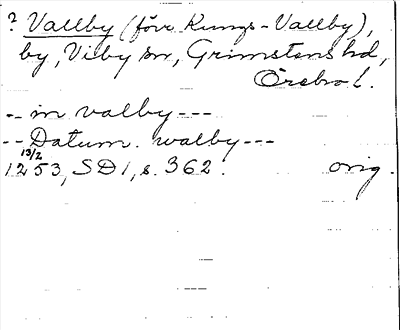 ? Vallby (förr Kungs-Vallby),
by, Viby sn, Grimstens hd,
Örebro l.
-- in valby ---
-- Datum. walby ---
13/2
1253, SD1, s. 362. orig.